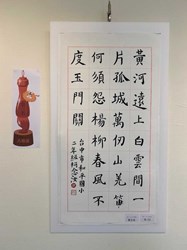 黃河遠上白雲間一
片孤城萬仞山羌笛
何須怨楊柳春風不
度玉門關
台中市和平國小
二年級